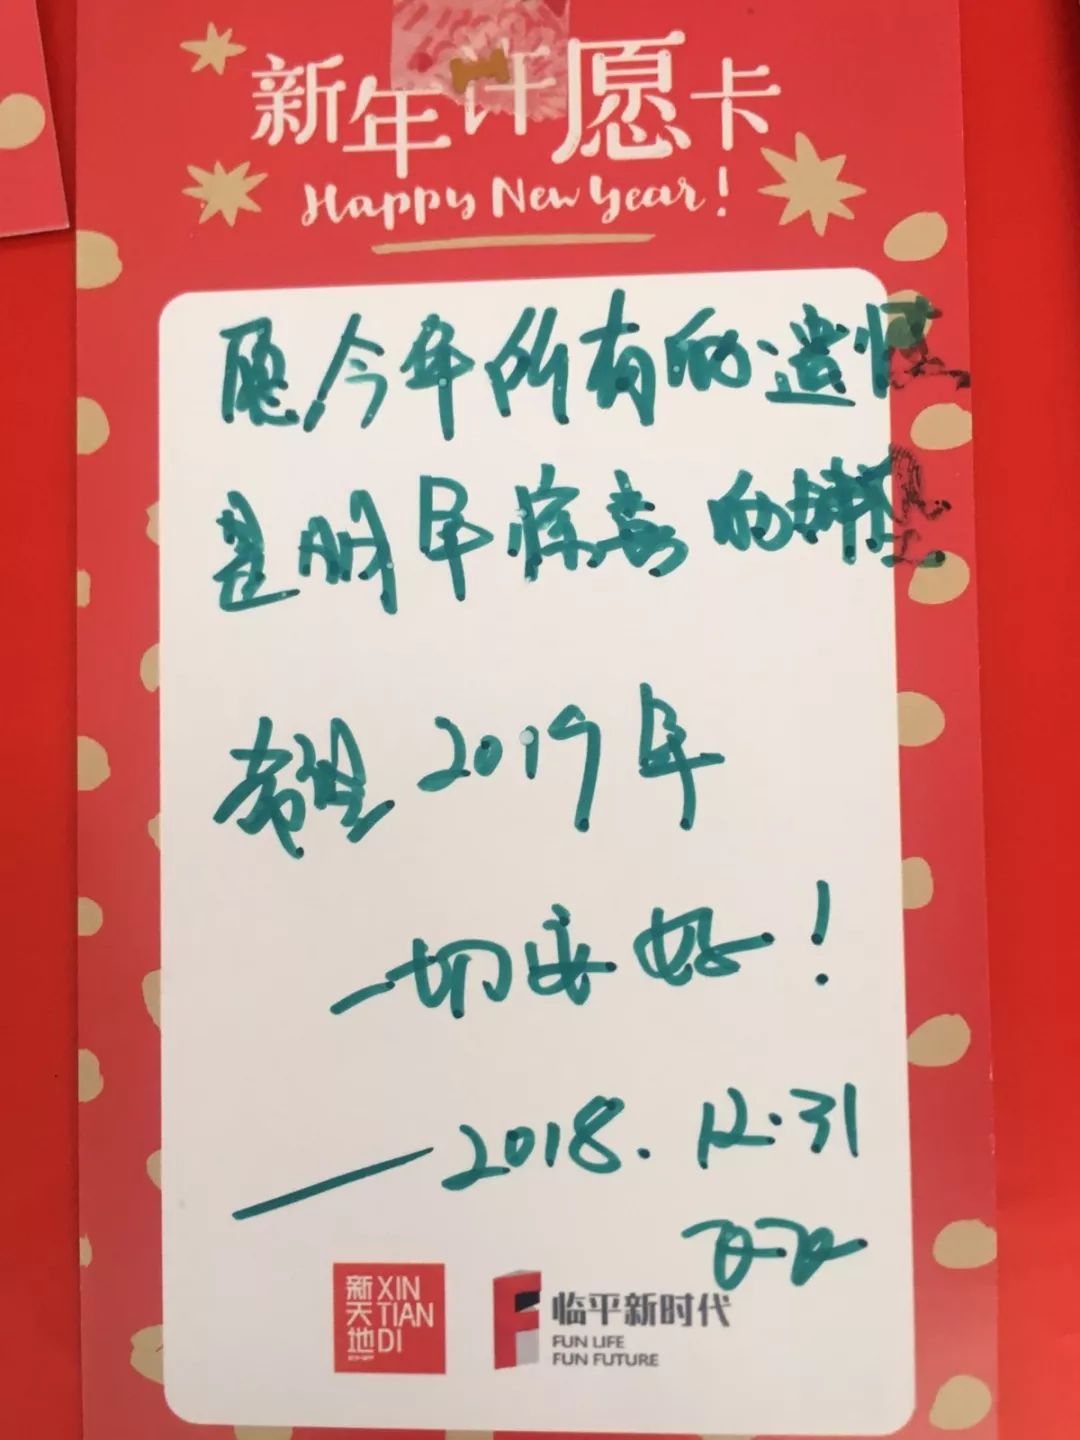 新年许愿卡
Happy New Year!
愿今年所有的遗憾
是明年惊喜的铺垫
希望2019年
一切安好!
——2018.12.31
新天地
XIN
TIAN
DI
临平新时代
FUN LIFE
FUN FUTURE